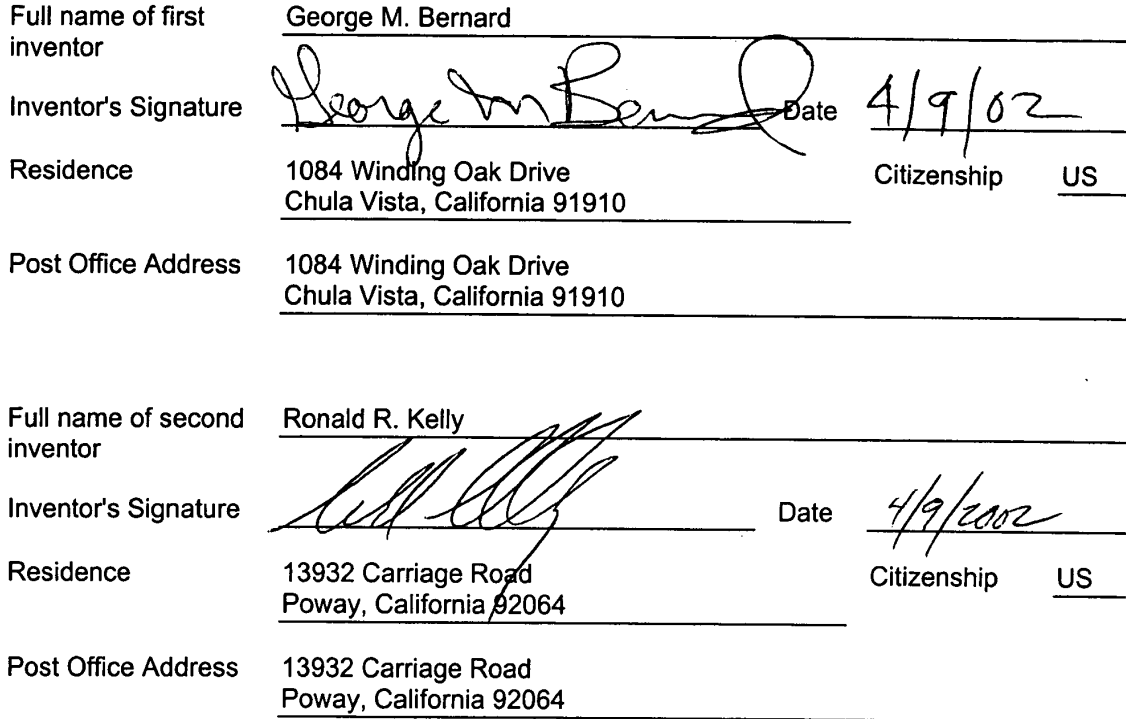 Full name of first inventor George M. Bernard
Inventor's Signature George M Bernard Date 4/9/02
Residence 1084 Winding Oak Drive Citizenship US
Chula Vista, California 91910
Post Office Address 1084 Winding Oak Drive
Chula Vista, California 91910
Full name of second inventor Ronald R. Kelly
Inventor's Signature Date 4/9/2002
Residence 13932 Carriage Road Citizenship US
Poway, California 92064
Post Office Address 13932 Carriage Road
Poway, California 92064